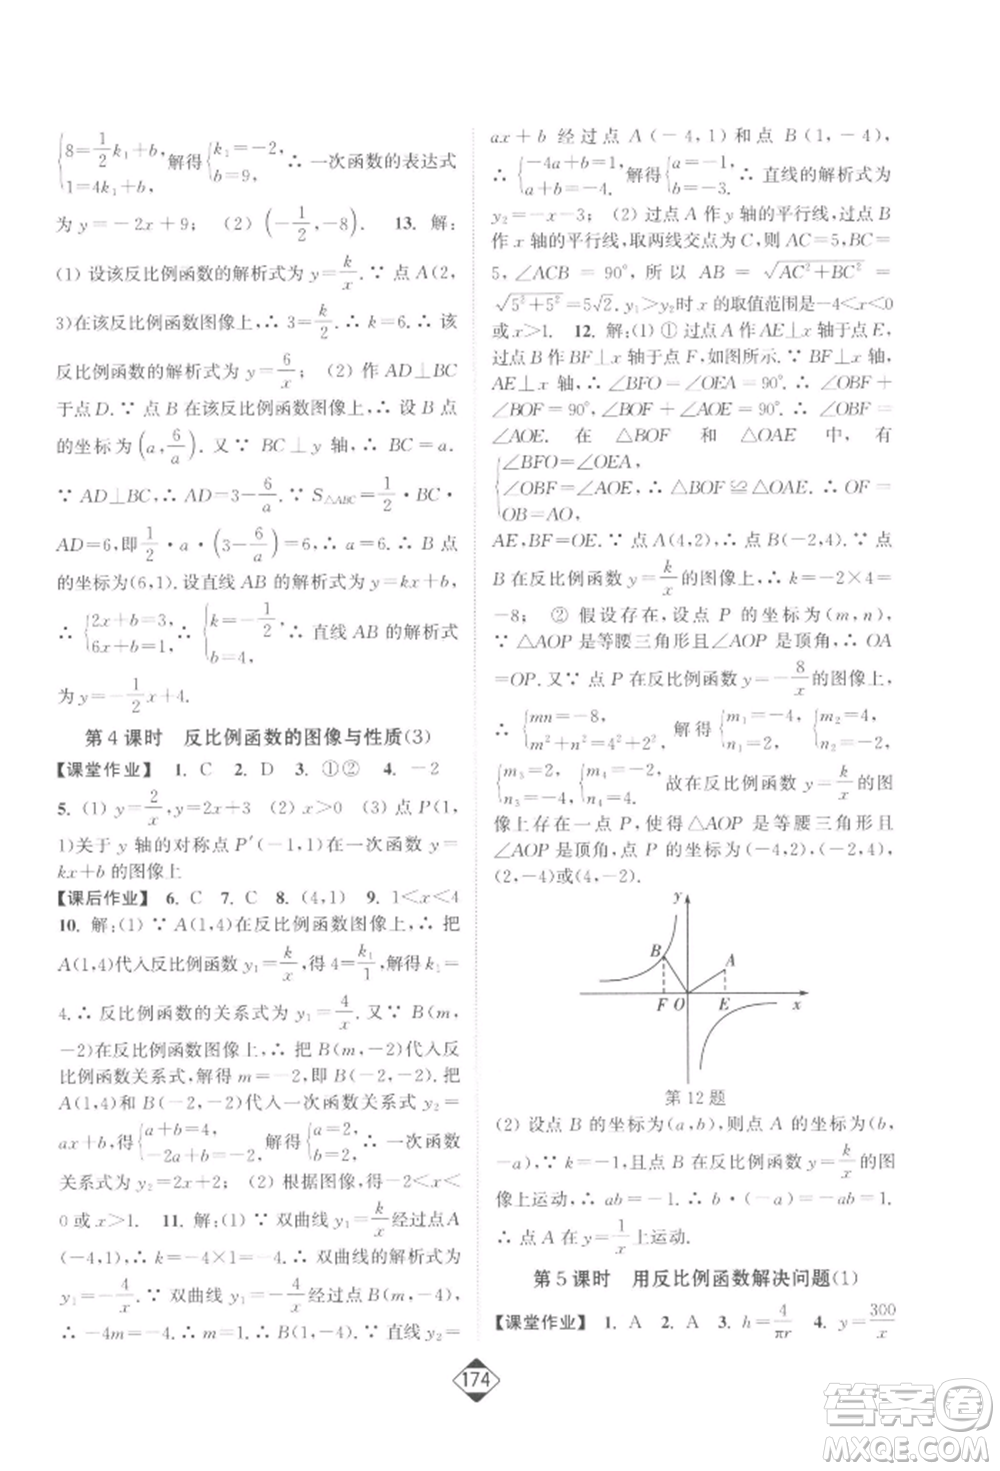 {8=1/2k₁+b, 1=4k₁+b, 解得{k₁=-2, b=9. ∴ 一次函数的表达式
为 y=-2x+9; (2) (-1/2,-8). 13. 解:
(1) 设该反比例函数的解析式为 y=k/x. ∵ 点 A(2,
3)在该反比例函数图像上,∴ 3=k/2. ∴ k=6. ∴ 该
反比例函数的解析式为 y=6/x; (2) 作 AD⊥BC
于点D. ∵ 点 B 在该反比例函数图像上,∴ 设 B 点
的坐标为(a,6/a). 又∵ BC∥y 轴,∴ BC=6/a.
∵ AD⊥BC,∴ AD=3-6/a. ∵ S△ABC=1/2BC·
AD=6,即1/2·a·(3-6/a),∴ a=6. ∴ B 点
的坐标为(6,1). 设直线 AB 的解析式为 y=kx+b,
∴ {2x+b=3, 6x+b=1, ∴ {k=-1/2, b=4, ∴ 直线 AB 的解析式
为 y=-1/2x+4.
第4课时 反比例函数的图像与性质(3)
【课堂作业】 1. C 2. D 3. ①② 4. -2
5. (1) y=2/x,y=2x+3 (2) x>0 (3) 点 P(1,
1)关于 y 轴的对称点 P′(-1,1)在一次函数 y=
kx+b 的图像上
【课后作业】 6. C 7. C 8. (4,1) 9. 1<x<4
10. 解:(1) ∵ A(1,4)在反比例函数图像上,∴ 把
A(1,4)代入反比例函数 y₁=k/x,得 4=k₁/1,解得 k₁=
4. ∴ 反比例函数的关系式为 y₁=4/x. 又∵ B(m,
-2)在反比例函数图像上,∴ 把 B(m,-2)代入反
比例函数关系式,解得 m=-2,即 B(-2,-2). 把
A(1,4)和 B(-2,-2)代入一次函数关系式 y₂=
ax+b,得{a+b=4, -2a+b=-2, 解得{a=2, b=2. ∴ 一次函数
关系式为 y₂=2x+2; (2) 根据图像得-2<x<
0或x>1. 11. 解:(1) ∵ 双曲线 y₁=k/x经过点A
(-4,1),∴ k=-4×1=-4. ∴ 双曲线的解析式为
y₁=-4/x. ∵ 双曲线 y₁=-4/x经过点 B(m,-4),
∴ -4m=-4. ∴ m=1. ∴ B(1,-4). ∵ 直线 y₂=
ax+b 经过点 A(-4,1)和点 B(1,-4),
∴ {-4a+b=1, a+b=-4. 解得{a=-1, b=-3. ∴ 直线的解析式为
y₂=-x-3; (2) 过点 A 作 y 轴的平行线,过点 B
作 x 轴的平行线,取两线交点为 C,则 AC=5,BC=
5,∠ACB=90°,所以 AB=√(AC²+BC²)=
√(5²+5²)=5√2. y₁>y₂时 x 的取值范围是-4<x<0
或x>1. 12. 解:(1) ① 过点 A 作 AE⊥x 轴于点 E,
过点 B 作 BF⊥x 轴于点 F,如图所示. ∵ BF⊥x轴,
AE⊥x 轴,∴ ∠BFO=∠OEA=90°. ∴ ∠OBF+
∠BOF=90°,∠BOF+∠AOE=90°. ∴ ∠OBF=
∠AOE. 在 △BOF 和 △OAE 中,有
{∠BFO=∠OEA, ∠OBF=∠AOE, OB=AO, ∴ △BOF≌△OAE. ∴ OF=
AE,BF=OE. ∵ 点A(4,2),∴ 点B(-2,4). ∵ 点
B 在反比例函数 y=k/x的图像上,∴ k=-2×4=
-8; ② 假设存在,设点 P 的坐标为(m,n),
∵ △AOP 是等腰三角形且∠AOP 是顶角,∴ OA
=OP. 又∵ 点 P 在反比例函数 y=-8/x的图像上,
∴ {mn=-8, m²+n²=4²+2². 解得{m₁=-4, n₁=2, {m₂=4, n₂=-2,
{m₃=-2, n₃=4, {m₄=2, n₄=-4. 故在反比例函数 y=k/x的图
像上存在一点 P,使得△AOP 是等腰三角形且
∠AOP 是顶角,点P 的坐标为(-4,2),(-2,4),
(2,-4)或(4,-2).
y
B
A
F O E x
第12题
(2) 设点 B 的坐标为(a,b),则点 A 的坐标为(b,
-a),∵ k=-1,且点 B 在反比例函数 y=k/x的图
像上运动,∴ ab=-1. ∴ b·(-a)=-ab=1.
∴ 点A 在 y=1/x上运动.
第5课时 用反比例函数解决问题(1)
【课堂作业】 1. A 2. A 3. h=4/πr 4. y=300/x
174
答案圈
MXQE.COM